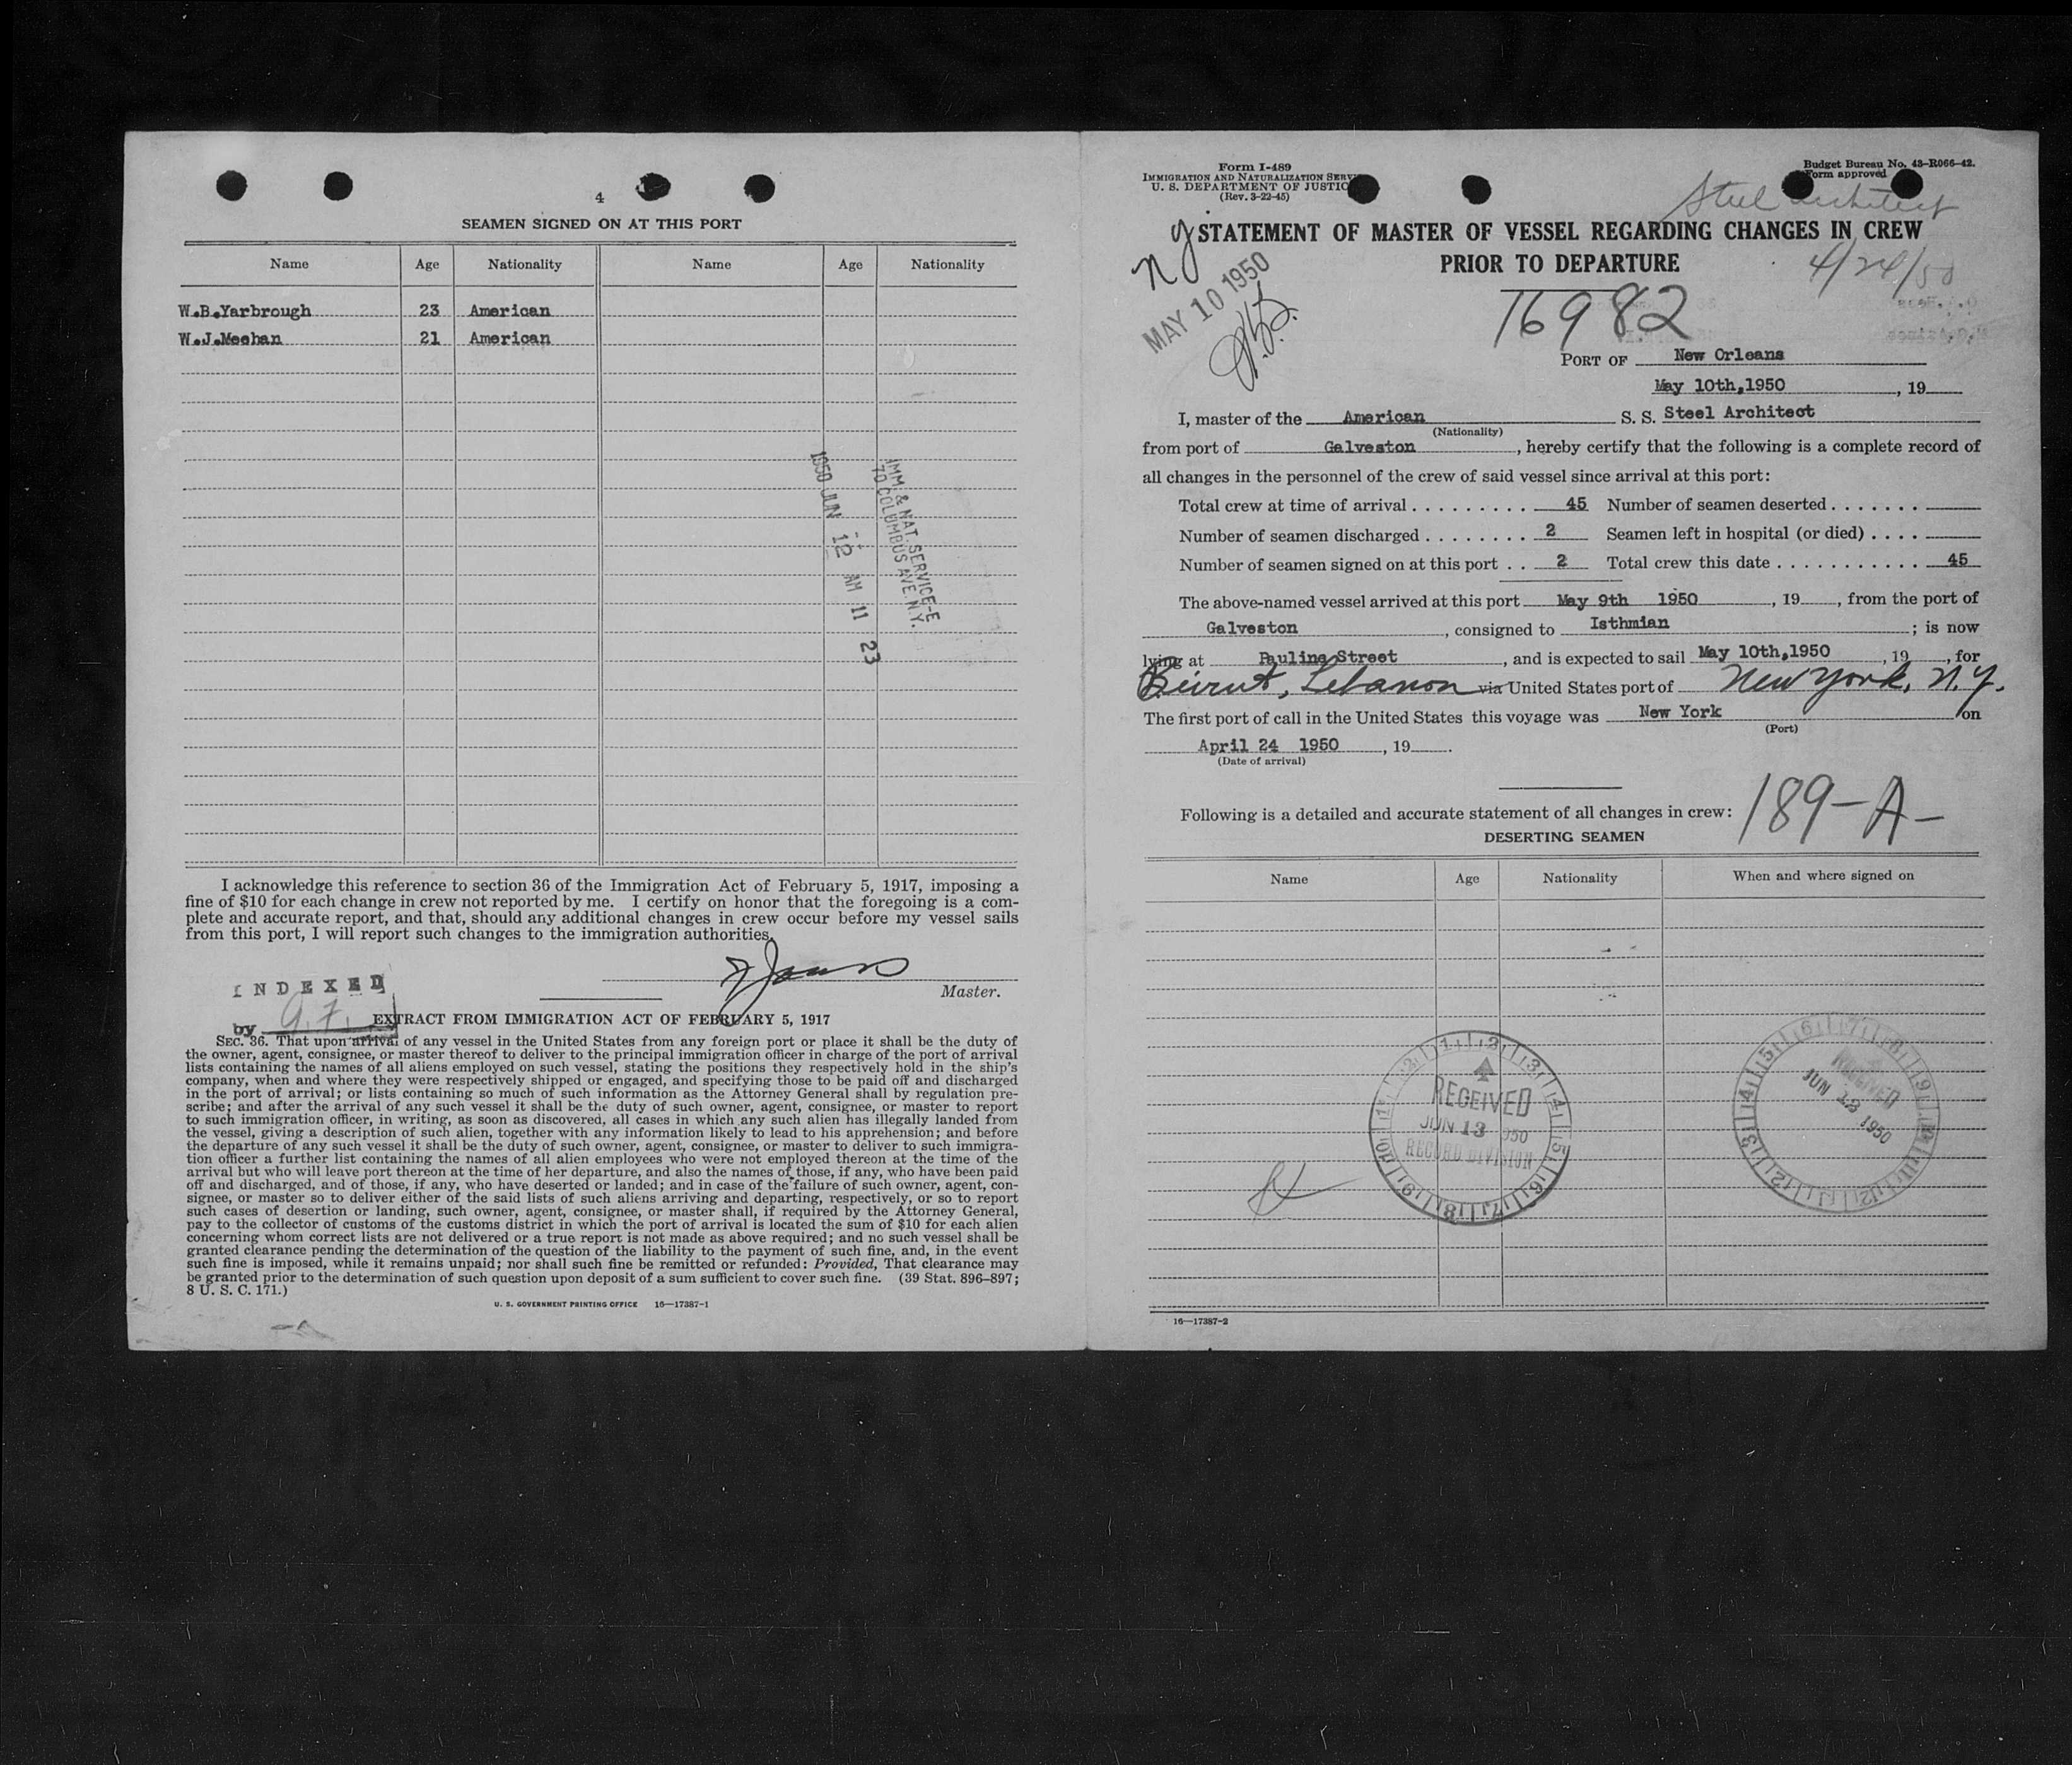 4
SEAMEN SIGNED ON AT THIS PORT
Name Age Nationality Name Age Nationality
W.B.Yarbrough 23 American
W.J.Meehan 21 American
IMM & NAT. SERVICE-E
70 COLUMBUS AVE. N.Y.
1950 JUN 12 AM 11 23
I acknowledge this reference to section 36 of the Immigration Act of February 5, 1917, imposing a
fine of $10 for each change in crew not reported by me. I certify on honor that the foregoing is a com-
plete and accurate report, and that, should any additional changes in crew occur before my vessel sails
from this port, I will report such changes to the immigration authorities.
Master.
INDEXED
by
EXTRACT FROM IMMIGRATION ACT OF FEBRUARY 5, 1917
SEC. 36. That upon arrival of any vessel in the United States from any foreign port or place it shall be the duty of
the owner, agent, consignee, or master thereof to deliver to the principal immigration officer in charge of the port of arrival
lists containing the names of all aliens employed on such vessel, stating the positions they respectively hold in the ship's
company, when and where they were respectively shipped or engaged, and specifying those to be paid off and discharged
in the port of arrival; or lists containing so much of such information as the Attorney General shall by regulation pre-
scribe; and after the arrival of any such vessel it shall be the duty of such owner, agent, consignee, or master to report
to such immigration officer, in writing, as soon as discovered, all cases in which any such alien has illegally landed from
the vessel, giving a description of such alien, together with any information likely to lead to his apprehension; and before
the departure of any such vessel it shall be the duty of such owner, agent, consignee, or master to deliver to such immigra-
tion officer a further list containing the names of all alien employees who were not employed thereon at the time of the
arrival but who will leave port thereon at the time of her departure, and also the names of those, if any, who have been paid
off and discharged, and of those, if any, who have deserted or landed; and in case of the failure of such owner, agent, con-
signee, or master so to deliver either of the said lists of such aliens arriving and departing, respectively, or so to report
such cases of desertion or landing, such owner, agent, consignee, or master shall, if required by the Attorney General,
pay to the collector of customs of the customs district in which the port of arrival is located the sum of $10 for each alien
concerning whom correct lists are not delivered or a true report is not made as above required; and no such vessel shall be
granted clearance pending the determination of the question of the liability to the payment of such fine, and, in the event
such fine is imposed, while it remains unpaid; nor shall such fine be remitted or refunded: Provided, That clearance may
be granted prior to the determination of such question upon deposit of a sum sufficient to cover such fine. (39 Stat. 896–897;
8 U. S. C. 171.)
U. S. GOVERNMENT PRINTING OFFICE 16—17387-1
Form I-489
IMMIGRATION AND NATURALIZATION SERV
U. S. DEPARTMENT OF JUSTIC
(Rev. 3-22-45)
Budget Bureau No. 43-R066-42.
Form approved
Steel Architect
STATEMENT OF MASTER OF VESSEL REGARDING CHANGES IN CREW
PRIOR TO DEPARTURE
ny
4/24/50
MAY 10 1950
16982
PORT OF New Orleans
May 10th,1950, 19
I, master of the American S. S. Steel Architect
(Nationality)
from port of Galveston, hereby certify that the following is a complete record of
all changes in the personnel of the crew of said vessel since arrival at this port:
Total crew at time of arrival . . . . . . . . . . 45 Number of seamen deserted . . . . . . .
Number of seamen discharged . . . . . . . . 2 Seamen left in hospital (or died) . . . .
Number of seamen signed on at this port . . 2 Total crew this date . . . . . . . . . . . . 45
The above-named vessel arrived at this port May 9th 1950, 19, from the port of
Galveston, consigned to Isthmian; is now
lying at Pauline Street, and is expected to sail May 10th,1950, 19, for
Beirut, Lebanon via United States port of New York, N.Y.
The first port of call in the United States this voyage was New York on
(Port)
April 24 1950, 19.
(Date of arrival)
Following is a detailed and accurate statement of all changes in crew:
189-A-
DESERTING SEAMEN
Name Age Nationality When and where signed on
RECEIVED
JUN 13 1950
RECORD DIVISION
RECEIVED
JUN 13 1950
16—17387-2